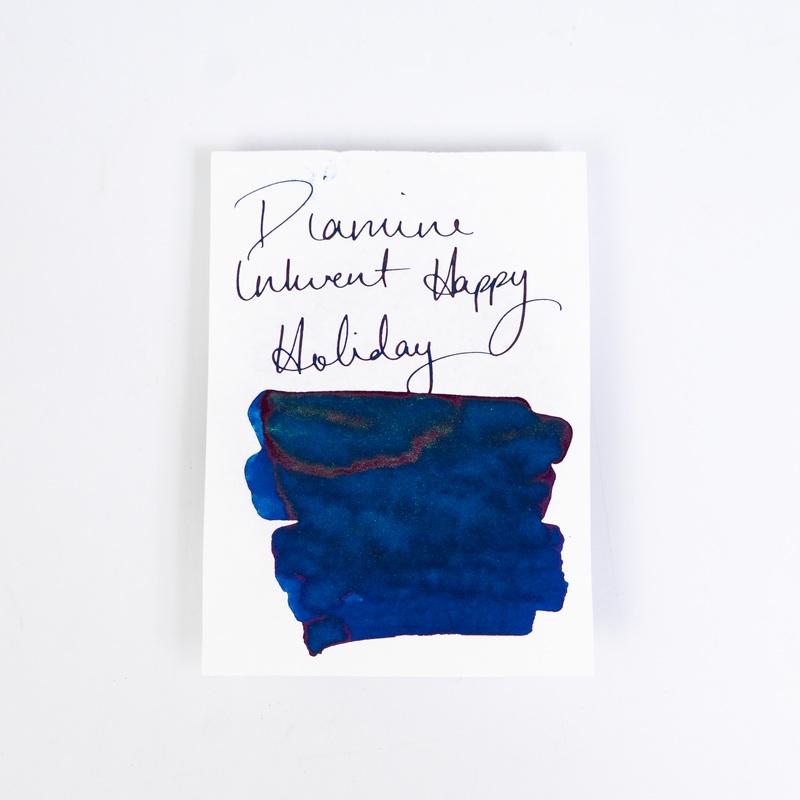 Diamine
Inkvent Happy
Holiday